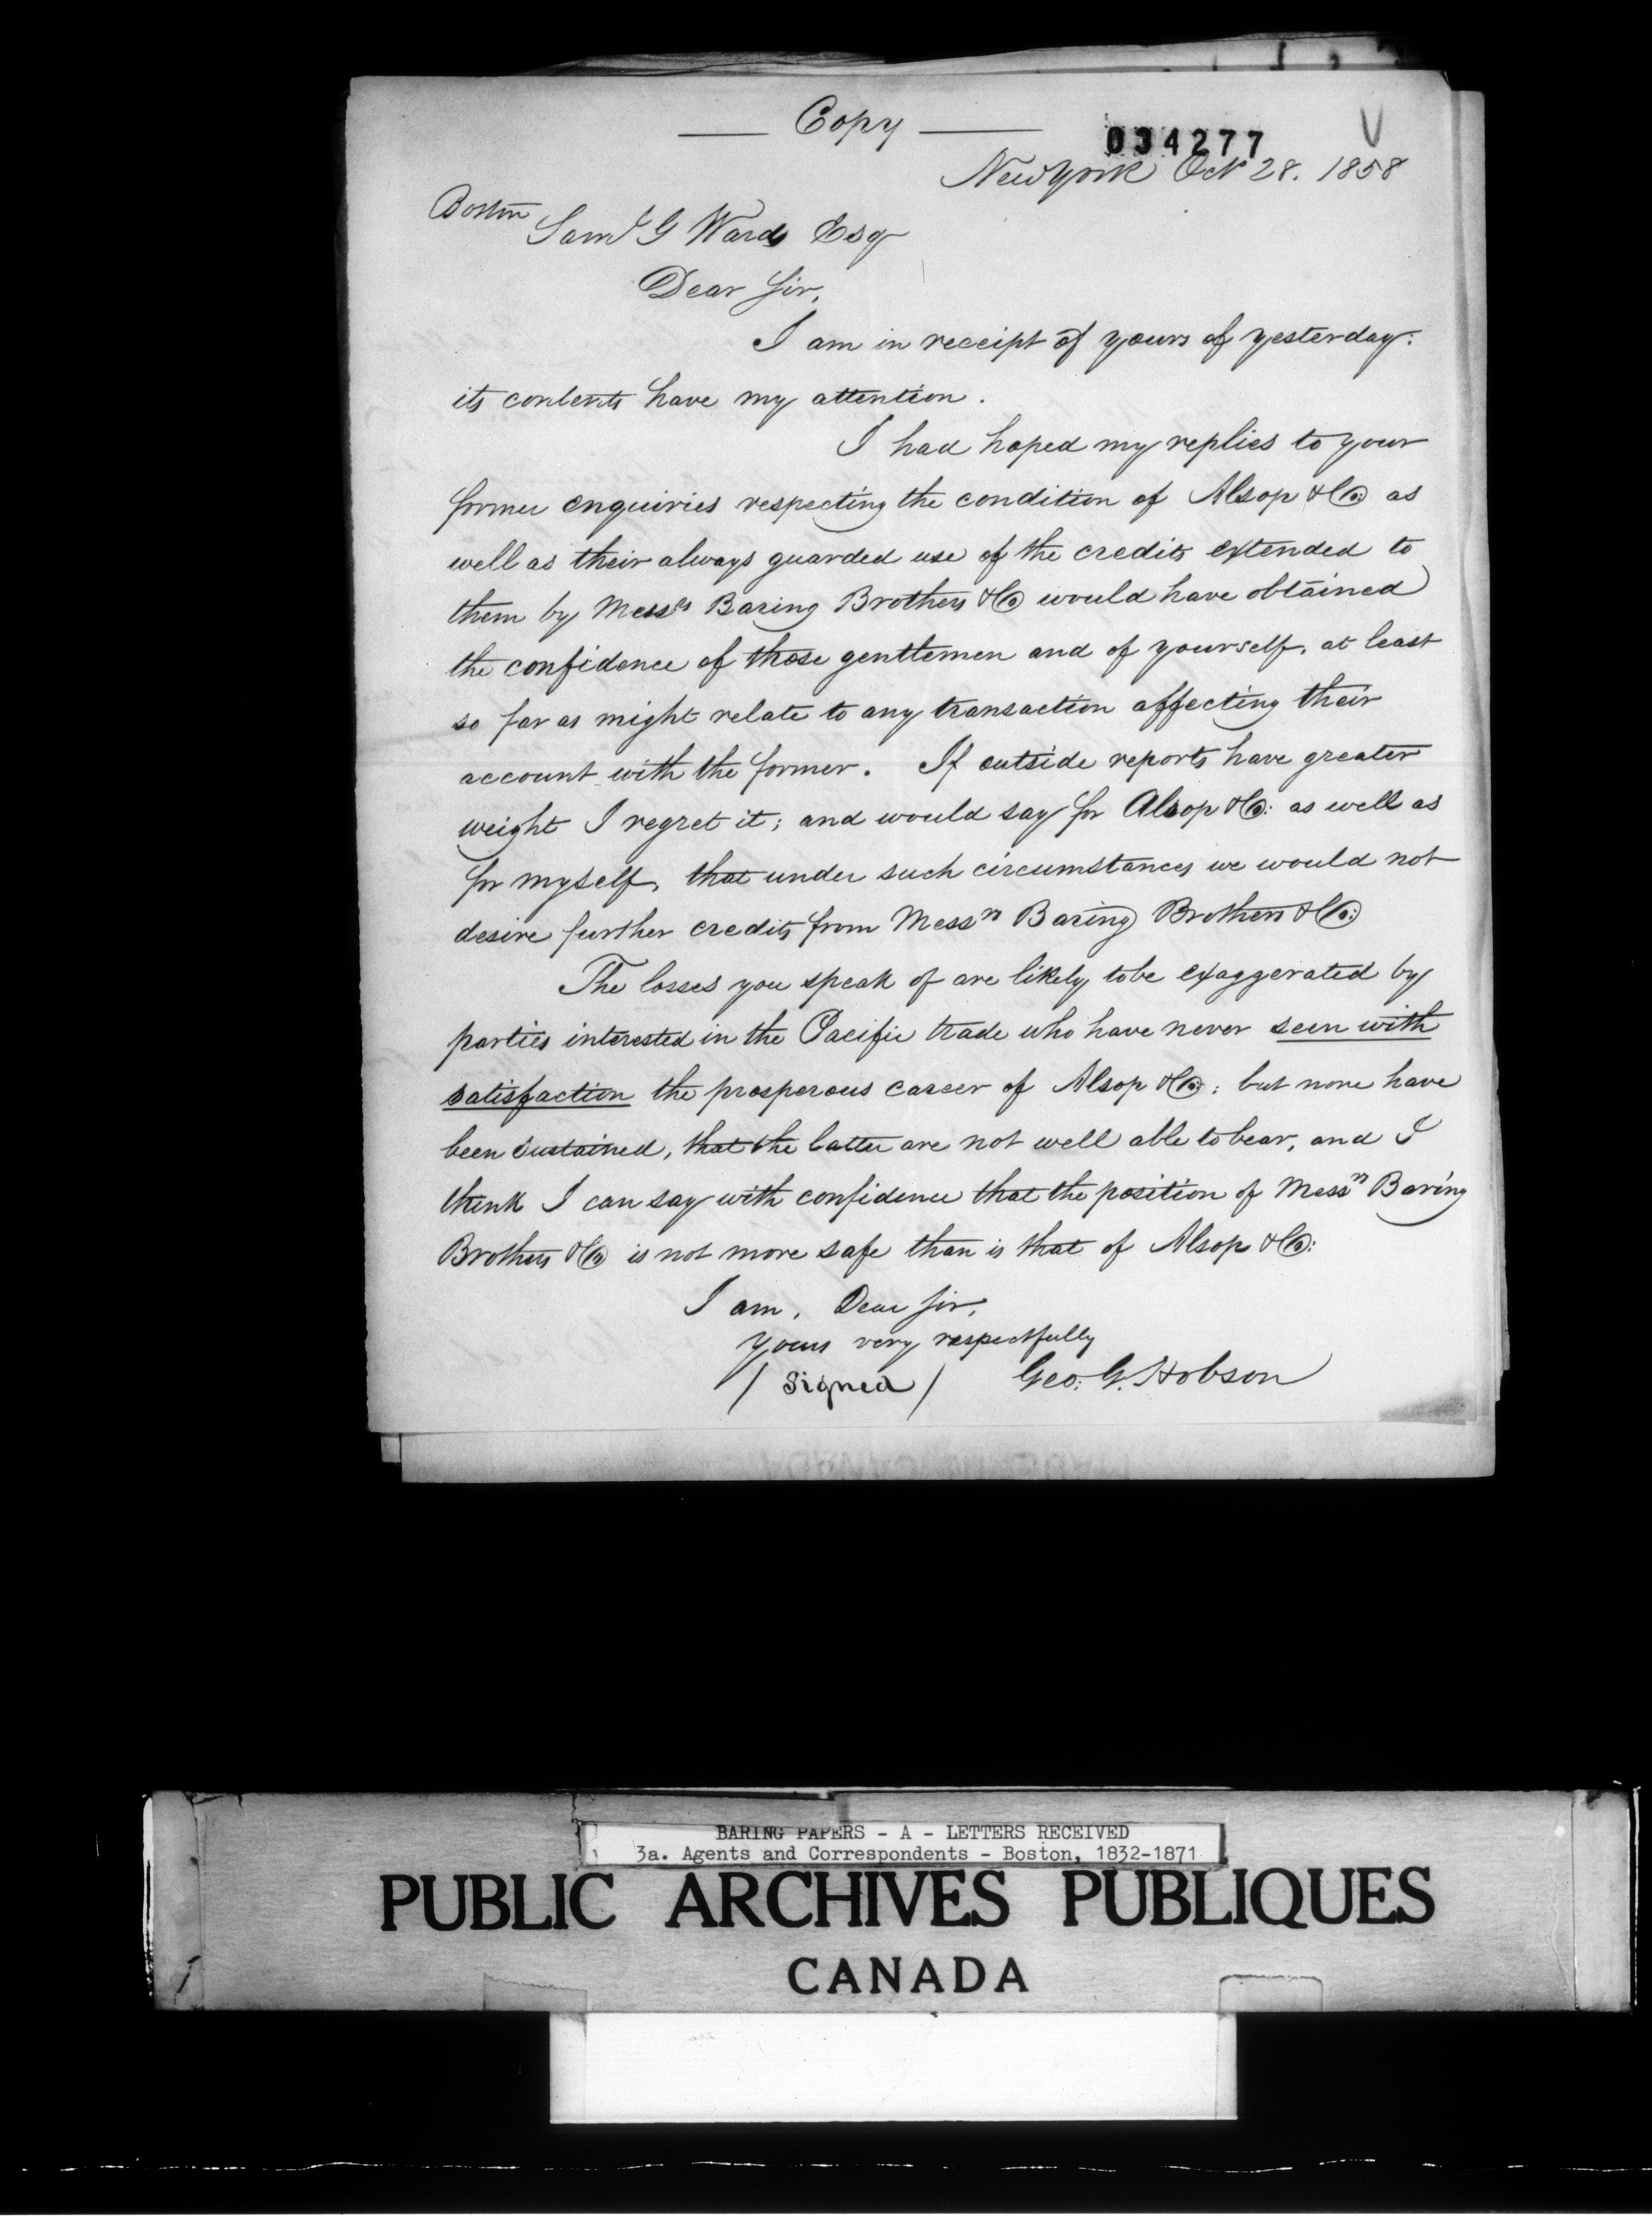 Copy
034277
New York Oct 28. 1858
Boston
Saml G Ward Esq
Dear Sir,
I am in receipt of yours of yesterday:
its contents have my attention.
I had hoped my replies to your
former enquiries respecting the condition of Alsop & Co: as
well as their always guarded use of the credits extended to
them by Messrs Baring Brothers & Co would have obtained
the confidence of those gentlemen and of yourself, at least
so far as might relate to any transaction affecting their
account with the former. If outside reports have greater
weight I regret it; and would say for Alsop & Co: as well as
for myself, that under such circumstances we would not
desire further credits from Messrs Baring Brothers & Co:
The losses you speak of are likely to be exaggerated by
parties interested in the Pacific trade who have never seen with
satisfaction the prosperous career of Alsop & Co: ; but none have
been sustained, that the latter are not well able to bear, and I
think I can say with confidence that the position of Messrs Baring
Brothers & Co is not more safe than is that of Alsop & Co:
I am, Dear Sir,
Yours very respectfully
/ Signed / Geo: G. Hobson
BARING PAPERS - A - LETTERS RECEIVED
3a. Agents and Correspondents - Boston, 1832-1871
PUBLIC ARCHIVES PUBLIQUES
CANADA